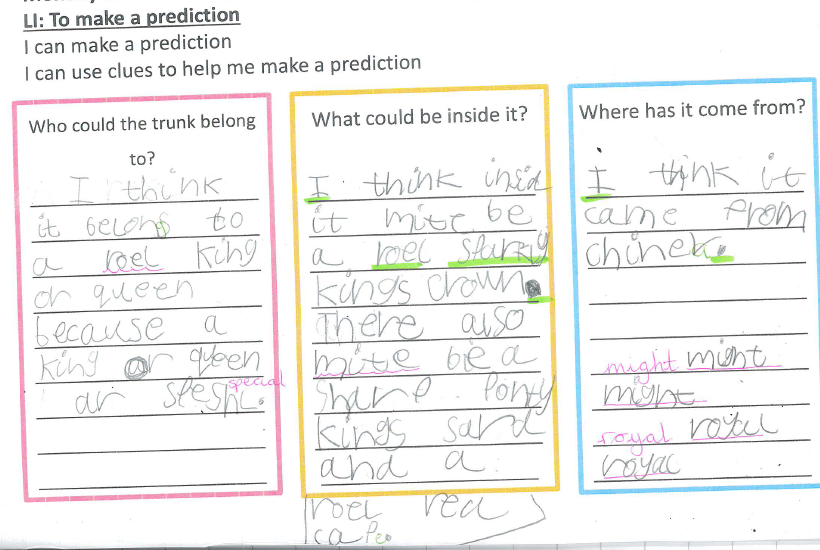 LI: To make a prediction
I can make a prediction
I can use clues to help me make a prediction
Who could the trunk belong
to?
I think
it belongs to
a roel king
or queen
because a
king or queen
ar speshl. special
What could be inside it?
I think insid
it mite be
a roel sparkly
kings crown.
There also
mite be a
sharp Ponty
kings sard
and a
roel red
cape.
Where has it come from?
I think it
came from
chinea.
might might
might
royal royal
royal